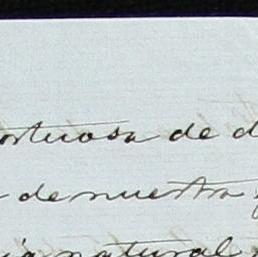 ortuosa de d
de nuestra
ia natural